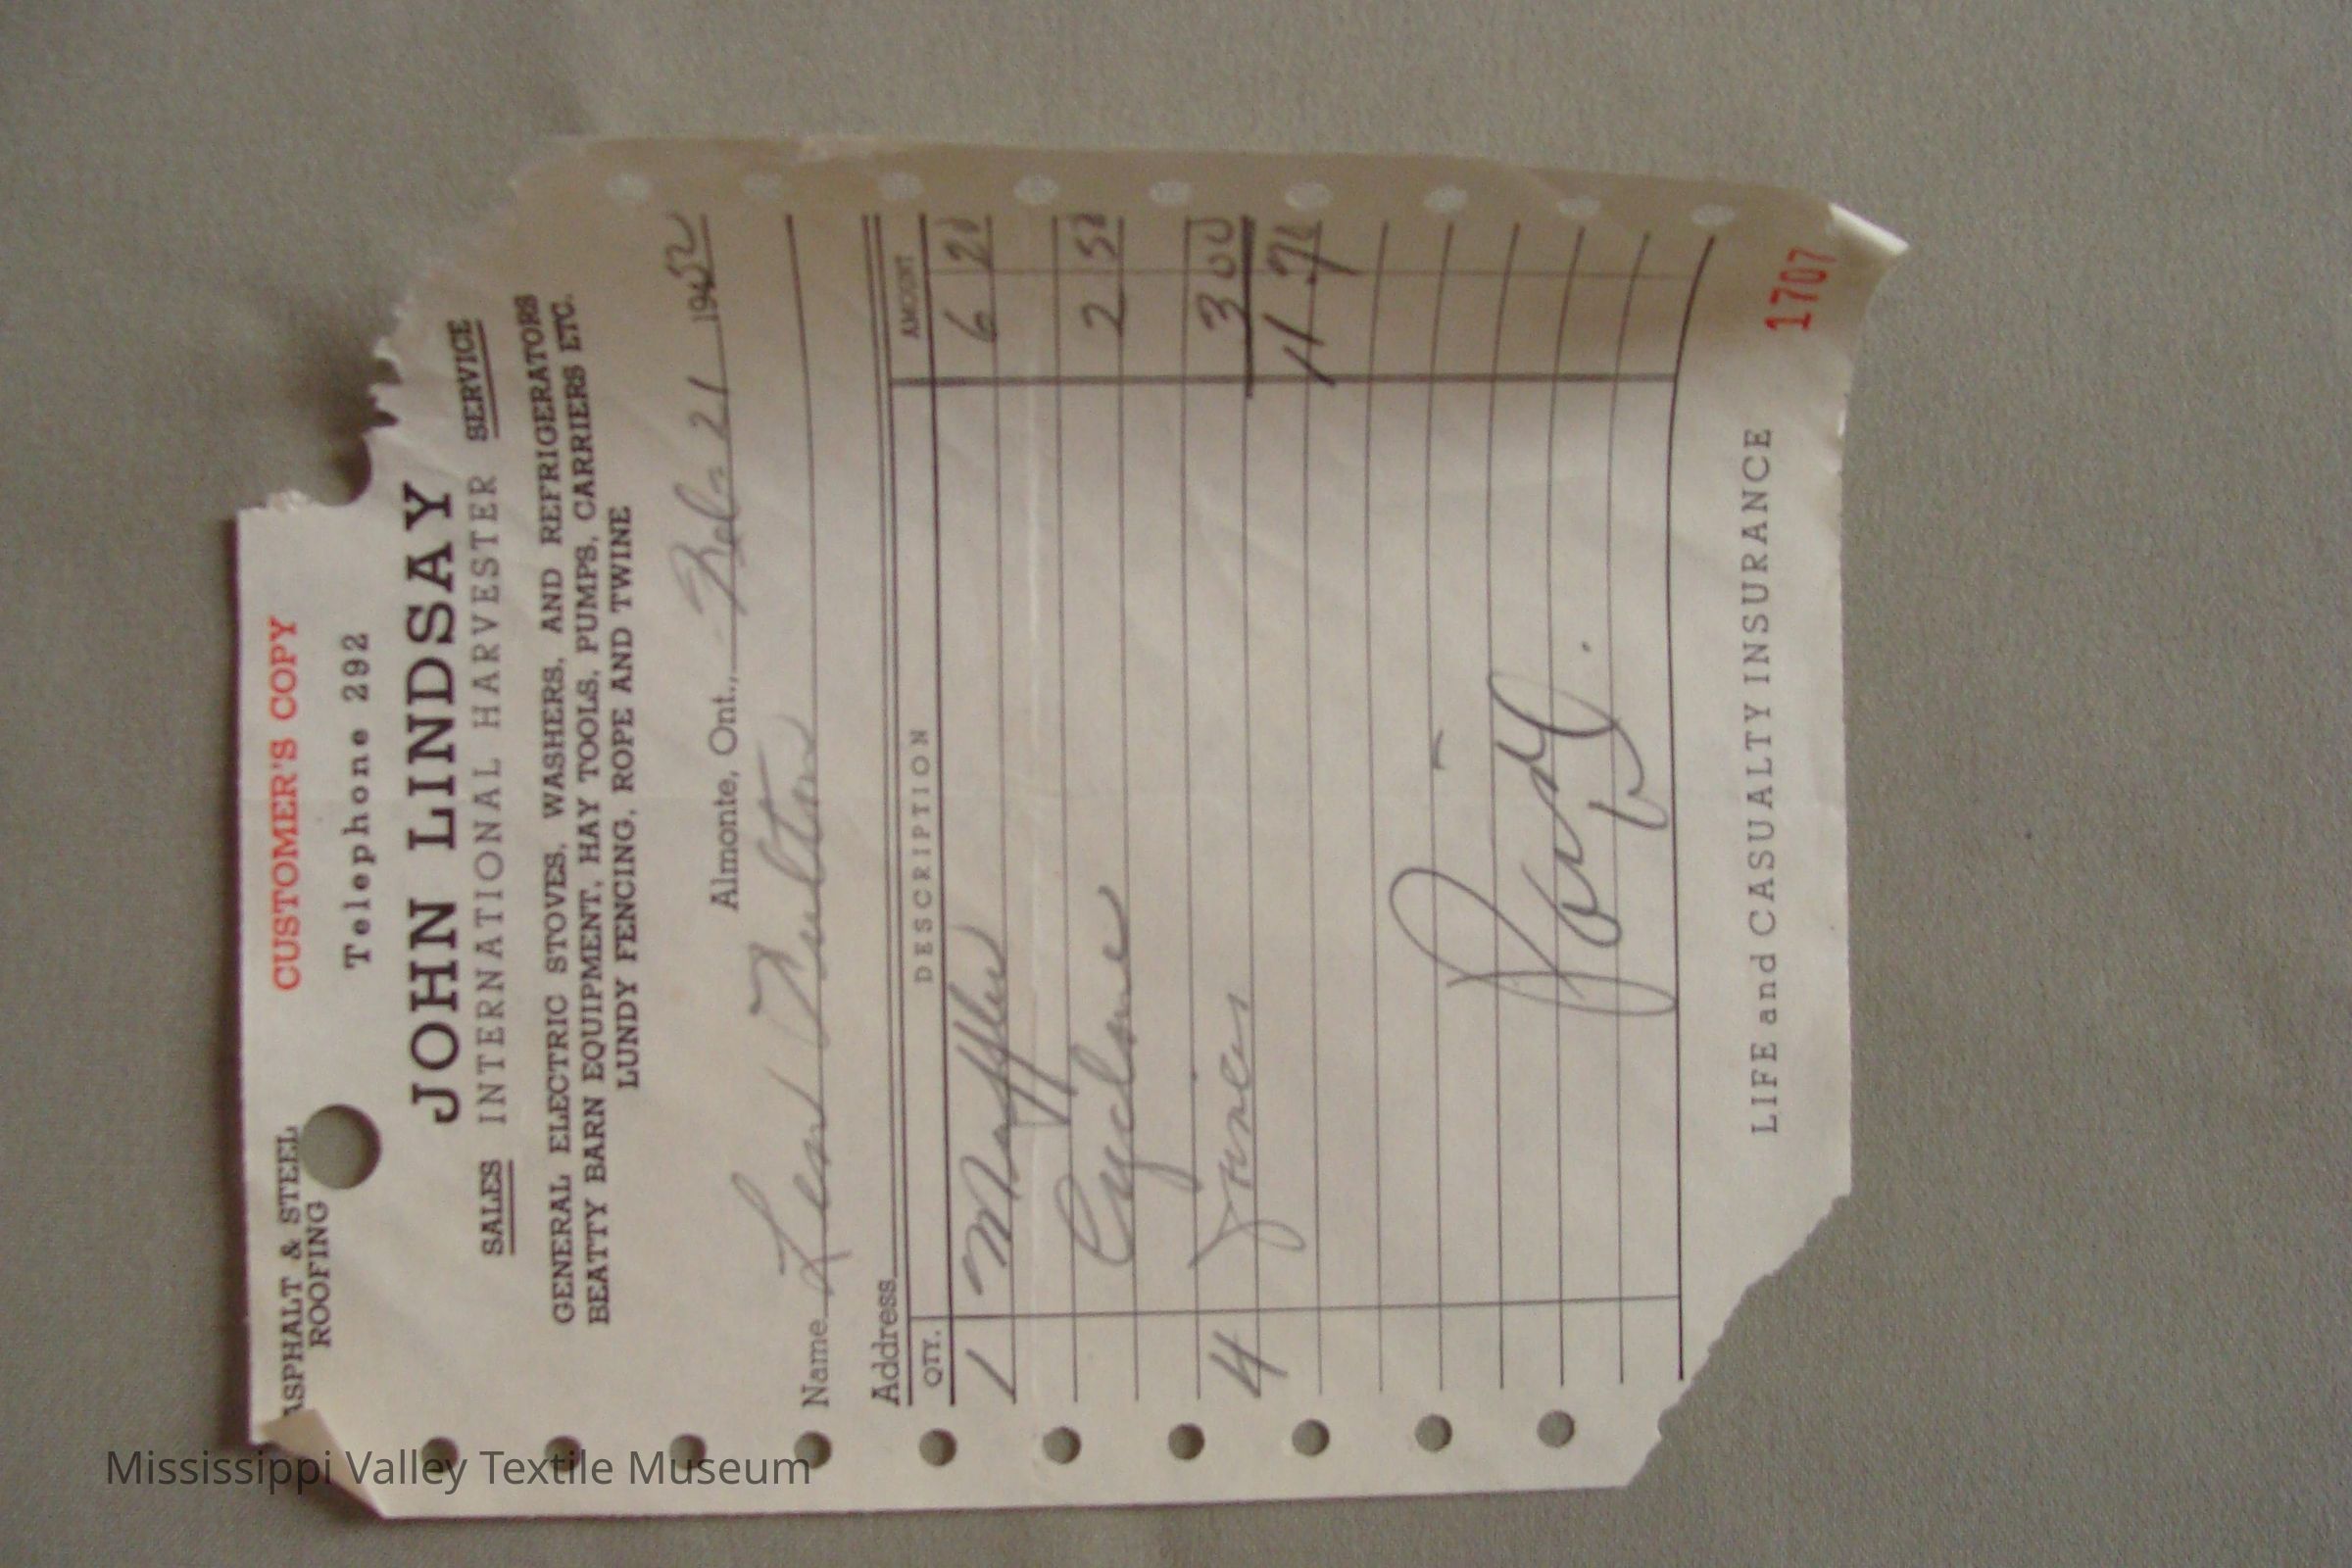 ASPHALT & STEEL
ROOFING
CUSTOMER'S COPY
Telephone 292
JOHN LINDSAY
SALES INTERNATIONAL HARVESTER SERVICE
GENERAL ELECTRIC STOVES, WASHERS, AND REFRIGERATORS
BEATTY BARN EQUIPMENT, HAY TOOLS, PUMPS, CARRIERS ETC.
LUNDY FENCING, ROPE AND TWINE
Almonte, Ont., Feb 21 1952
Name Fulton
Address
QTY. DESCRIPTION AMOUNT
1 Muffler 6 21
Cyclone 2 51
4 3 00
11 71
Paid
LIFE and CASUALTY INSURANCE
1707
Mississippi Valley Textile Museum